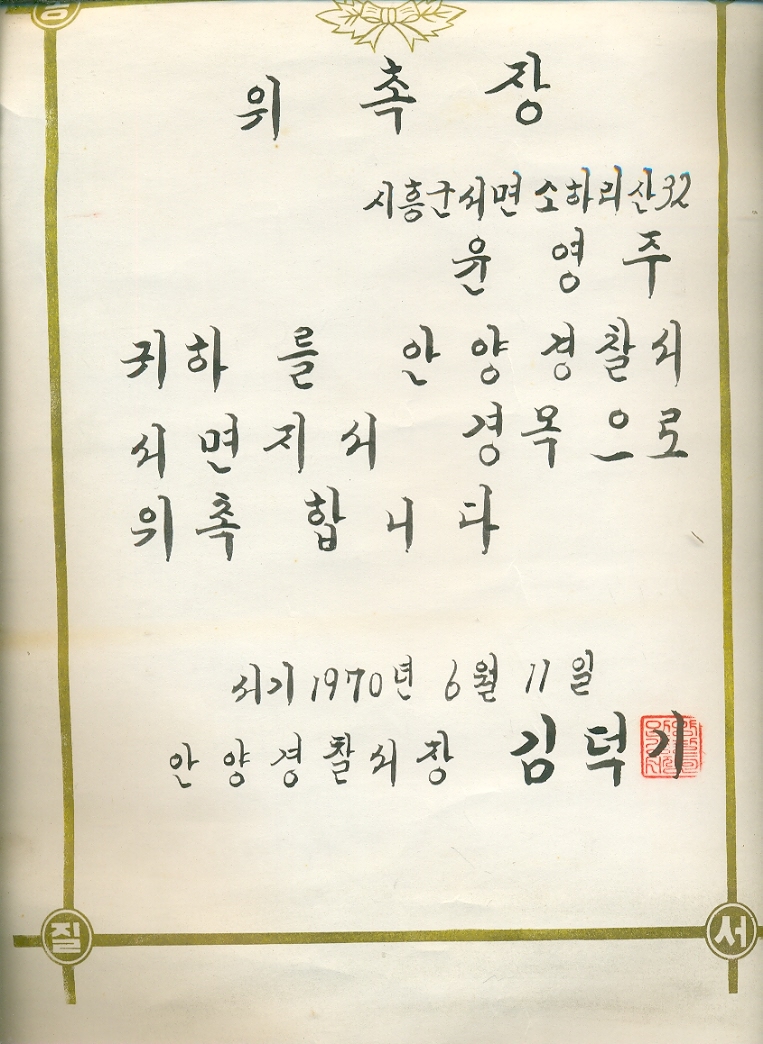 위촉장
시흥군서면 소하리산32
윤영주
귀하를 안양경찰서
서면지서 경목으로
위촉합니다
서기 1970년 6월 11일
안양경찰서장 김덕기
질
서